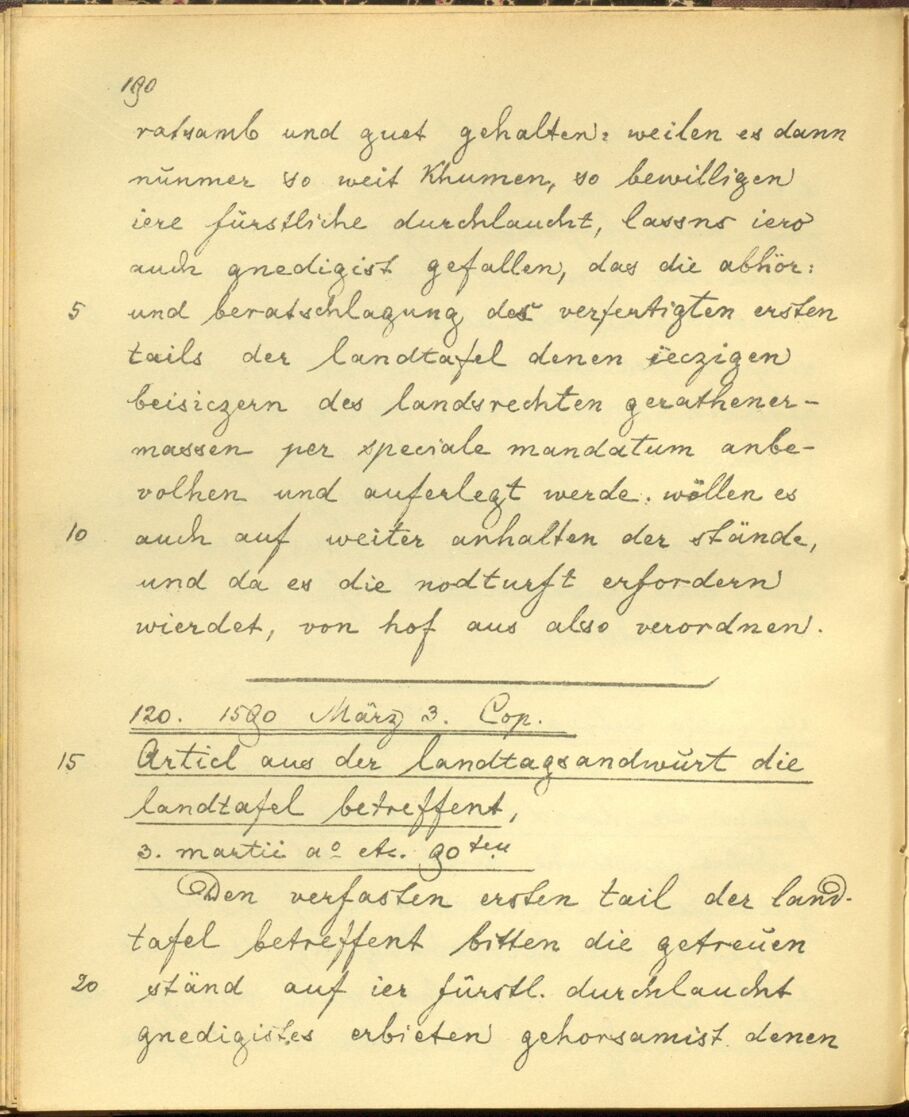 190
ratsamb und guet gehalten: weilen es dann
nŭnmer so weit khumen, so bewilligen
iere fürstliche durchlaucht, lassns iero
auch gnedigist gefallen, das die abhör:
5 und beratschlagung des verfertigten ersten
tails der landtafel denen ieczigen
beisiczern des landsrechten gerathener-
massen per speciale mandatum anbe-
volhen und auferlegt werde. wöllen es
10 auch auf weiter anhalten der stände,
und da es die nodturft erfordern
wierdet, von hof aus also verordnen.
120. 1590 März 3. Cop.
15 Articl aus der landtagsandwŭrt die
landtafel betreffent,
3. martii aº etc. 90ten
Den verfasten ersten tail der land-
tafel betreffent bitten die getreŭen
20 ständ auf ier fürstl. durchlaucht
gnedigistes erbieten gehorsamist denen